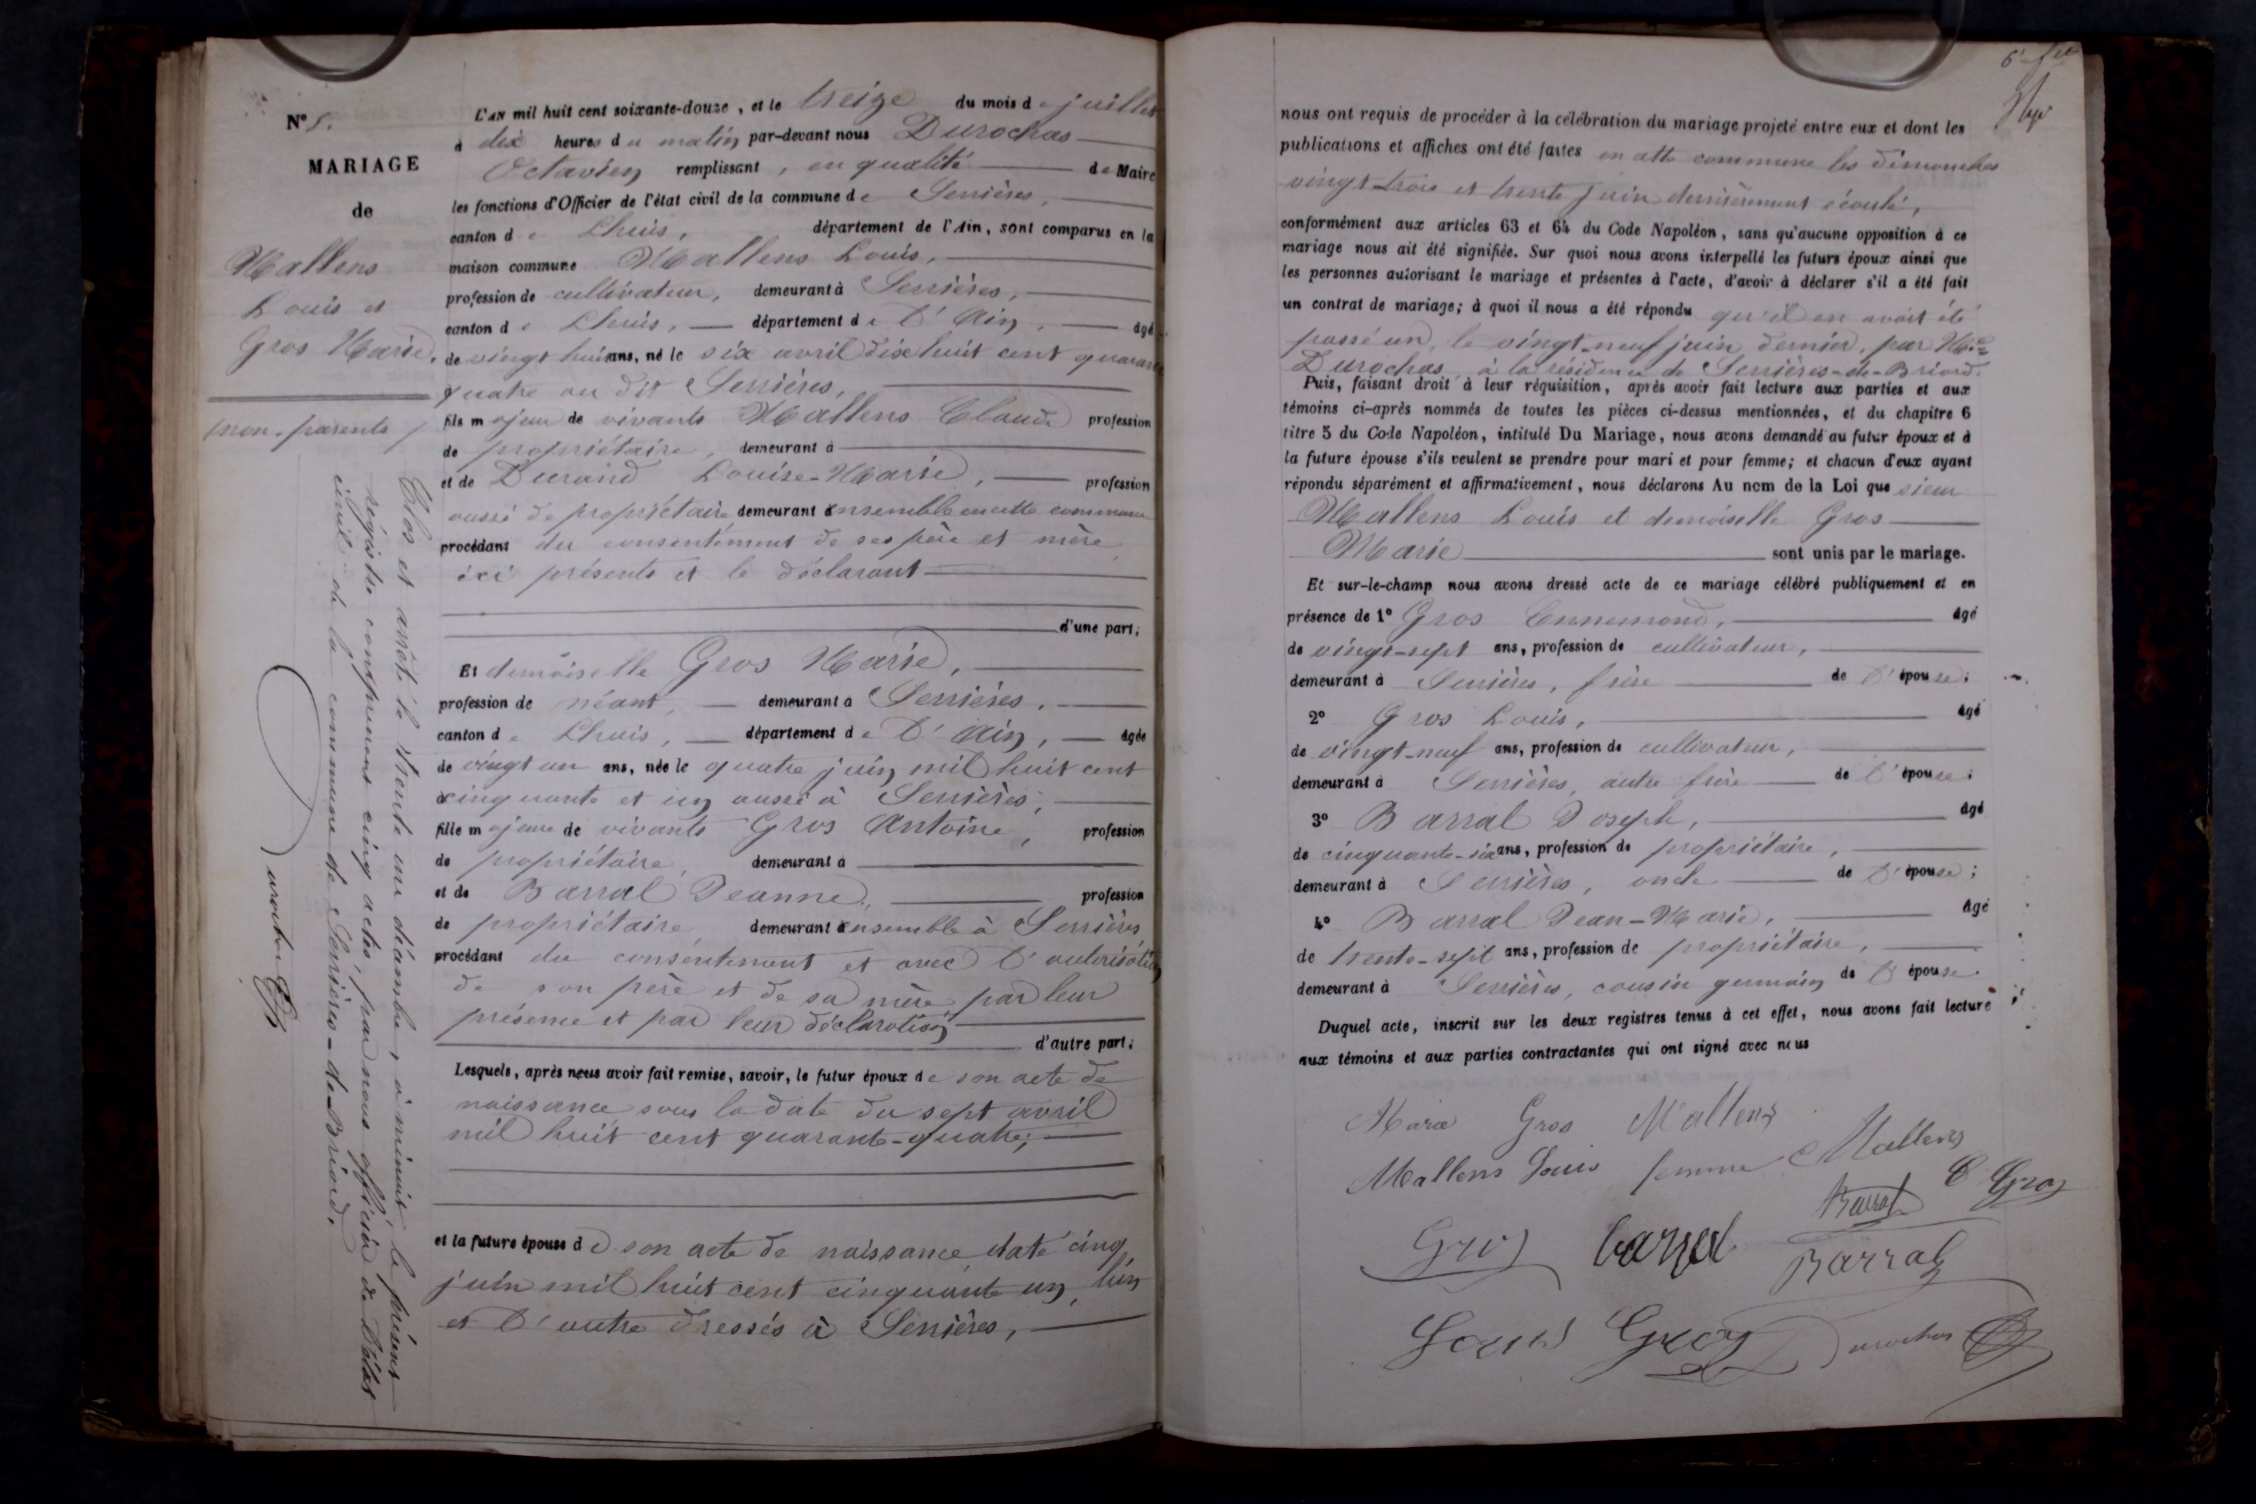 N° 5.
MARIAGE
de
Mallens
Louis et
Gros Marie.
(non-parents)
Clos et arrêté le trente un décembre, à minuit, le présent
régistre comprenant cinq actes, par nous officier de l'état
civil de la commune de Serrières-de-Briord.
Durochas
L'AN mil huit cent soixante-douze, et le treize du mois de juillet
à dix heures du matin par-devant nous Durochas
Octavien remplissant, en qualité de Maire
les fonctions d'Officier de l'état civil de la commune de Serrières,
canton de Lhuis, département de l'Ain, sont comparus en la
maison commune Mallens Louis,
profession de cultivateur, demeurant à Serrières,
canton de Lhuis, département de l'Ain, âgé
de vingt huit ans, né le six avril dix huit cent quarante
quatre au dit Serrières,
fils majeur de vivants Mallens Claude profession
de propriétaire, demeurant à
et de Durand Louise-Marie, profession
aussi de propriétaire demeurant ensemble en cette commune
procédant du consentement de ses père et mère
ici présents et le déclarant
d'une part;
Et demoiselle Gros Marie,
profession de néant, demeurant à Serrières,
canton de Lhuis, département de l'Ain, âgée
de vingt un ans, née le quatre juin mil huit cent
cinquante et un aussi à Serrières,
fille majeure de vivants Gros Antoine, profession
de propriétaire, demeurant à
et de Barral Jeanne, profession
de propriétaire, demeurant ensemble à Serrières
procédant du consentement et avec l'autorisation
de son père et de sa mère par leur
présence et par leur déclaration
d'autre part;
Lesquels, après nous avoir fait remise, savoir, le futur époux de son acte de
naissance sous la date du sept avril
mil huit cent quarante-quatre;
et la future épouse de son acte de naissance daté cinq
juin mil huit cent cinquante un, l'un
et l'autre dressés à Serrières,
nous ont requis de procéder à la célébration du mariage projeté entre eux et dont les
publications et affiches ont été faites en cette commune les dimanches
vingt-trois et trente juin dernièrement écoulé,
conformément aux articles 63 et 64 du Code Napoléon, sans qu'aucune opposition à ce
mariage nous ait été signifiée. Sur quoi nous avons interpellé les futurs époux ainsi que
les personnes autorisant le mariage et présentes à l'acte, d'avoir à déclarer s'il a été fait
un contrat de mariage; à quoi il nous a été répondu qu'il en avait été
passé un, le vingt-neuf juin dernier, par Me
Durochas, à la résidence de Serrières-de-Briord.
Puis, faisant droit à leur réquisition, après avoir fait lecture aux parties et aux
témoins ci-après nommés de toutes les pièces ci-dessus mentionnées, et du chapitre 6
titre 5 du Code Napoléon, intitulé Du Mariage, nous avons demandé au futur époux et à
la future épouse s'ils veulent se prendre pour mari et pour femme; et chacun d'eux ayant
répondu séparément et affirmativement, nous déclarons Au nom de la Loi que sieur
Mallens Louis et demoiselle Gros
Marie sont unis par le mariage.
Et sur-le-champ nous avons dressé acte de ce mariage célébré publiquement et en
présence de 1° Gros Ennemond, âgé
de vingt-sept ans, profession de cultivateur,
demeurant à Serrières, frère de l'épouse;
2° Gros Louis, âgé
de vingt-neuf ans, profession de cultivateur,
demeurant à Serrières, autre frère de l'épouse;
3° Barral Joseph, âgé
de cinquante-six ans, profession de propriétaire,
demeurant à Serrières, oncle de l'épouse;
4° Barral Jean-Marie, âgé
de trente-sept ans, profession de propriétaire,
demeurant à Serrières, cousin germain de l'épouse.
Duquel acte, inscrit sur les deux registres tenus à cet effet, nous avons fait lecture
aux témoins et aux parties contractantes qui ont signé avec nous
Marie Gros Mallens
Mallens Louis femme Mallens
Barral E Gros
Gros barral Barral
Louis Gros Durochas